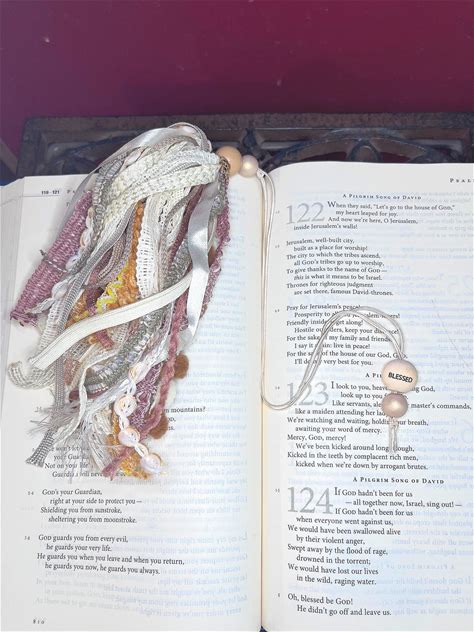 110–121
mountains?
your Guardian
Not on your life!
GOD's your Guardian,
right at your side to protect you—
Shielding you from sunstroke,
sheltering you from moonstroke.
GOD guards you from every evil,
he guards your very life.
He guards you when you leave and when you return,
he guards you now, he guards you always.
810
A PILGRIM SONG OF DAVID
122 When they said, "Let's go to the house of GOD,"
my heart leaped for joy.
And now we're here, O Jerusalem,
inside Jerusalem's walls!
Jerusalem, well-built city,
built as a place for worship!
The city to which the tribes ascend,
all GOD's tribes go up to worship,
To give thanks to the name of GOD—
this is what it means to be Israel.
Thrones for righteous judgment
are set there, famous David-thrones.
Pray for Jerusalem's peace!
Prosperity to all
Friendly insiders, get along!
Hostile outsiders, keep your distance!
For the sake of my family and friends,
I say it again: live in peace!
For the sake of the house of our GOD,
I'll do my very best for you.
A PILGRIM
123 I look to you, heaven-dwelling GOD,
look up to you
Like servants, alert to their master's commands,
like a maiden attending her lady,
We're watching and waiting, holding our breath,
awaiting your word of mercy.
Mercy, GOD, mercy!
We've been kicked around long enough,
Kicked in the teeth by complacent rich men,
kicked when we're down by arrogant brutes.
BLESSED
A PILGRIM SONG OF DAVID
124 If GOD hadn't been for us
—all together now, Israel, sing out!—
If GOD hadn't been for us
when everyone went against us,
We would have been swallowed alive
by their violent anger,
Swept away by the flood of rage,
drowned in the torrent;
We would have lost our lives
in the wild, raging water.
Oh, blessed be GOD!
He didn't go off and leave us.